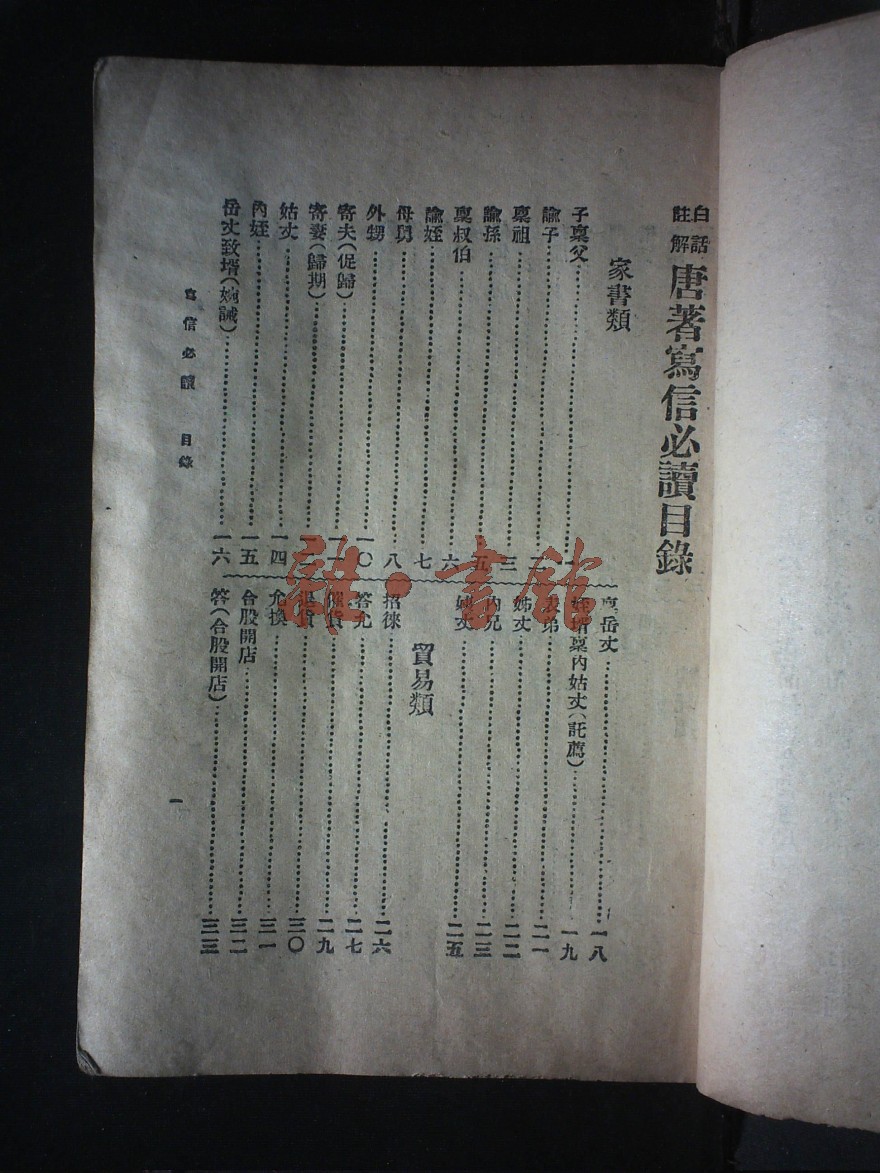 白話註解
唐著寫信必讀目錄
家書類
子稟父 一
諭子 二
稟祖 三
諭孫 五
稟叔伯 六
諭姪 七
母舅 八
外甥 一〇
寄夫(促歸) 一一
寄妻(歸期)
姑丈 一四
內姪 一五
岳丈致壻(婉誡) 一六
稟岳丈 一八
姪壻稟內姑丈(託薦) 一九
表弟 二一
姊丈 二二
內兄 二三
丈 二五
貿易類
招徠 二六
答允 二七
貨 二九
退貨 三〇
允換 三一
合股開店 三二
答(合股開店) 三三
寫信必讀 目錄
一
雜·書館